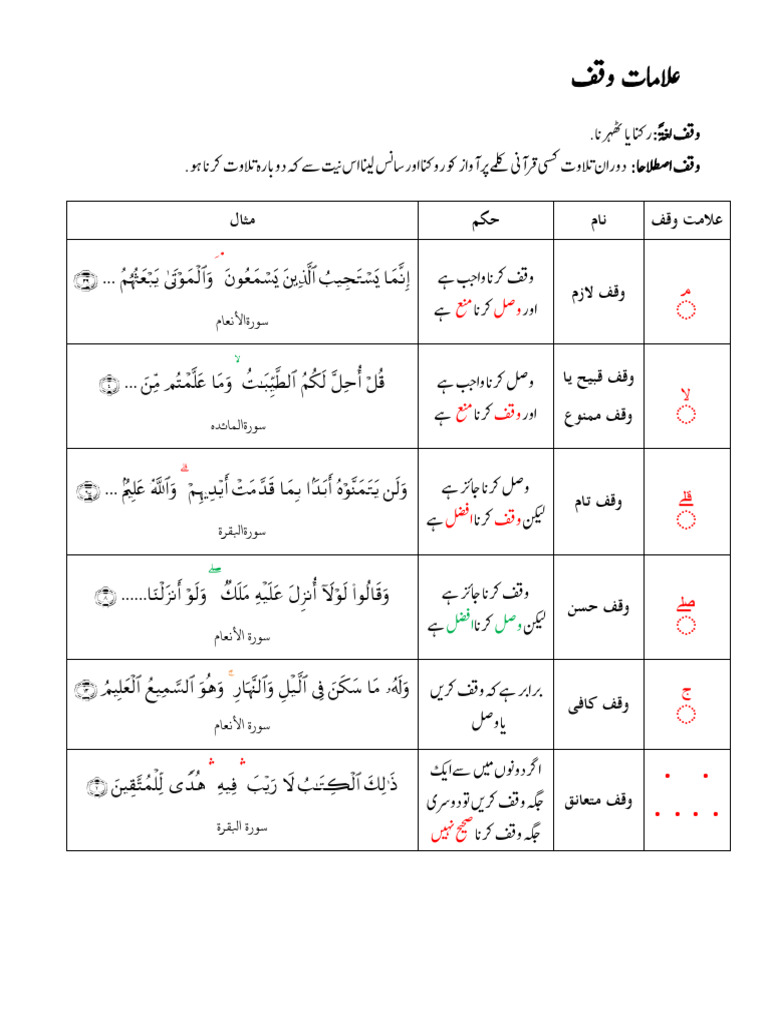 علامات وقف
وقف لغۃً: رکنا یا ٹھہرنا.
وقف اصطلاحا: دوران تلاوت کسی قرآنی کلمے پر آواز کو روکنا اور سانس لینا اس نیت سے کہ دوبارہ تلاوت کرنا ہو.
علامت وقف نام حکم مثال
مـ
وقف لازم
وقف کرنا واجب ہے
اور وصل کرنا منع ہے
إِنَّمَا يَسْتَجِيبُ ٱلَّذِينَ يَسْمَعُونَۘ وَٱلْمَوْتَىٰ يَبْعَثُهُمُ ... ۝٣٦
سورة الأنعام
لا
وقف قبیح یا
وقف ممنوع
وصل کرنا واجب ہے
اور وقف کرنا منع ہے
قُلْ أُحِلَّ لَكُمُ ٱلطَّيِّبَـٰتُۙ وَمَا عَلَّمْتُم مِّنَ ... ۝٤
سورة المائده
قلے
وقف تام
وصل کرنا جائز ہے
لیکن وقف کرنا افضل ہے
وَلَن يَتَمَنَّوْهُ أَبَدًۢا بِمَا قَدَّمَتْ أَيْدِيهِمْۗ وَٱللَّهُ عَلِيمٌۢ ...
سورة البقرة
صلے
وقف حسن
وقف کرنا جائز ہے
لیکن وصل کرنا افضل ہے
وَقَالُوا۟ لَوْلَآ أُنزِلَ عَلَيْهِ مَلَكٌۖ وَلَوْ أَنزَلْنَا...... ۝٨
سورة الأنعام
ج
وقف کافی
برابر ہے کہ وقف کریں
یا وصل
وَلَهُۥ مَا سَكَنَ فِى ٱلَّيْلِ وَٱلنَّهَارِۚ وَهُوَ ٱلسَّمِيعُ ٱلْعَلِيمُ ۝١٣
سورة الأنعام
وقف متعانق
اگر دونوں میں سے ایک
جگہ وقف کریں تو دوسری
جگہ وقف کرنا صحیح نہیں
ذَٰلِكَ ٱلْكِتَـٰبُ لَا رَيْبَۛ فِيهِۛ هُدًى لِّلْمُتَّقِينَ ۝٢
سورة البقرة